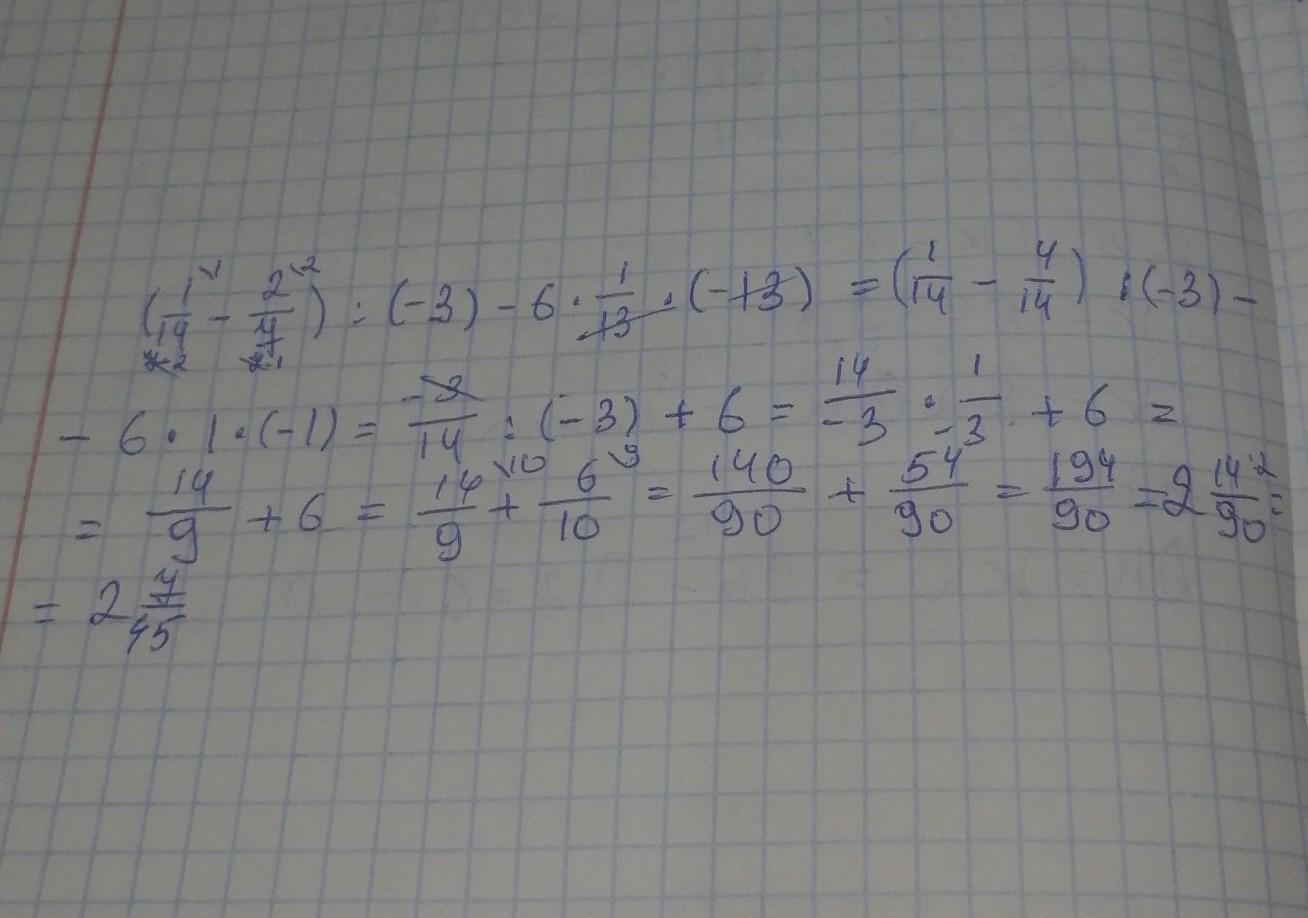 (1/14 \1 - 2/7 \2) : (-3) - 6 · 1/13 · (-13) = (1/14 - 4/14) : (-3) -
- 6 · 1 · (-1) = -3/14 : (-3) + 6 = 14/-3 · 1/-3 + 6 =
= 14/9 + 6 = 14/9 \10 + 6/10 \9 = 140/90 + 54/90 = 194/90 = 2 14/90 \2 =
= 2 7/45